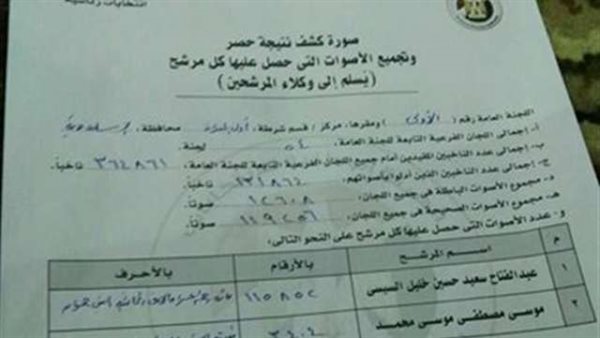 انتخابات رئاسية
صورة كشف نتيجة حصر
وتجميع الأصوات التى حصل عليها كل مرشح
(يسلم إلى وكلاء المرشحين)
اللجنة العامة رقم ( الأولى ) ومقرها، مركز / قسم شرطة، محافظة،
أ- إجمالى عدد اللجان الفرعية التابعة للجنة العامة، ٥٤ لجنة
ب- إجمالى عدد الناخبين المقيدين أمام جميع اللجان الفرعية التابعة للجنة العامة، ٣٦٤٨٦١ ناخباً.
ج- إجمالى عدد الناخبين الذين أدلوا بأصواتهم، ١٣١٨٦٤ ناخباً.
د- مجموع الأصوات الباطلة فى جميع اللجان، ١٢٦٠٨ صوتاً.
هـ- مجموع الأصوات الصحيحة فى جميع اللجان، ١١٩٢٥٦ صوتاً.
و- عدد الأصوات التى حصل عليها كل مرشح على النحو التالى:
م اسم المرشح بالأرقام بالأحرف
١ عبدالفتاح سعيد حسين خليل السيسى ١١٥٨٥٢
٢ موسى مصطفى موسى محمد ٣٤٠٤